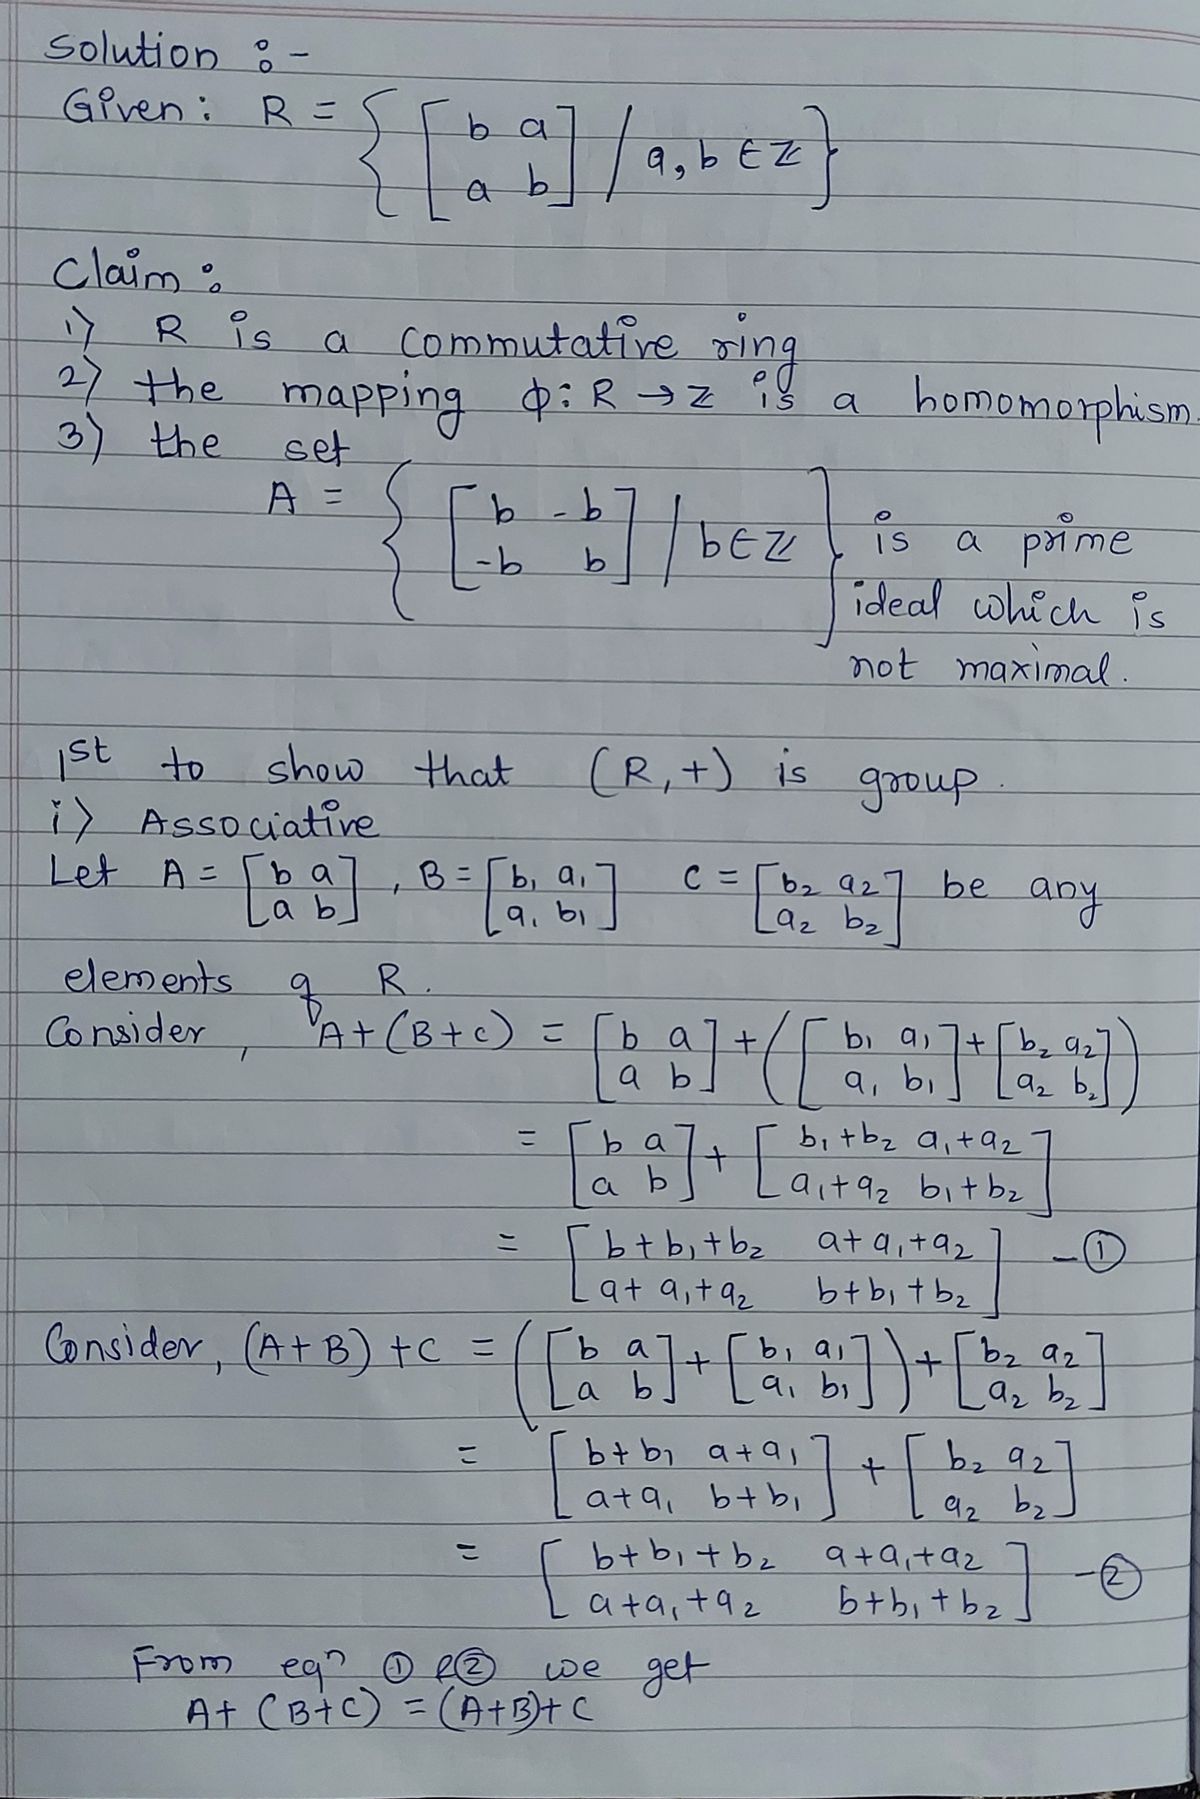 Solution :-
Given: R = { [ b a / a b ] / a, b ∈ Z }
Claim:
1) R is a commutative ring
2) the mapping ϕ: R → Z is a homomorphism.
3) the set
A = { [ b -b / -b b ] / b ∈ Z } is a prime
ideal which is
not maximal.
1st to show that (R, +) is group.
i) Associative
Let A = [ b a / a b ], B = [ b₁ a₁ / a₁ b₁ ] C = [ b₂ a₂ / a₂ b₂ ] be any
elements of R.
Consider, A+(B+C) = [ b a / a b ] + ( [ b₁ a₁ / a₁ b₁ ] + [ b₂ a₂ / a₂ b₂ ] )
= [ b a / a b ] + [ b₁+b₂ a₁+a₂ / a₁+a₂ b₁+b₂ ]
= [ b+b₁+b₂ a+a₁+a₂ / a+a₁+a₂ b+b₁+b₂ ] -①
Consider, (A+B)+C = ( [ b a / a b ] + [ b₁ a₁ / a₁ b₁ ] ) + [ b₂ a₂ / a₂ b₂ ]
= [ b+b₁ a+a₁ / a+a₁ b+b₁ ] + [ b₂ a₂ / a₂ b₂ ]
= [ b+b₁+b₂ a+a₁+a₂ / a+a₁+a₂ b+b₁+b₂ ] -②
From eqⁿ ① & ② we get
A+(B+C) = (A+B)+C